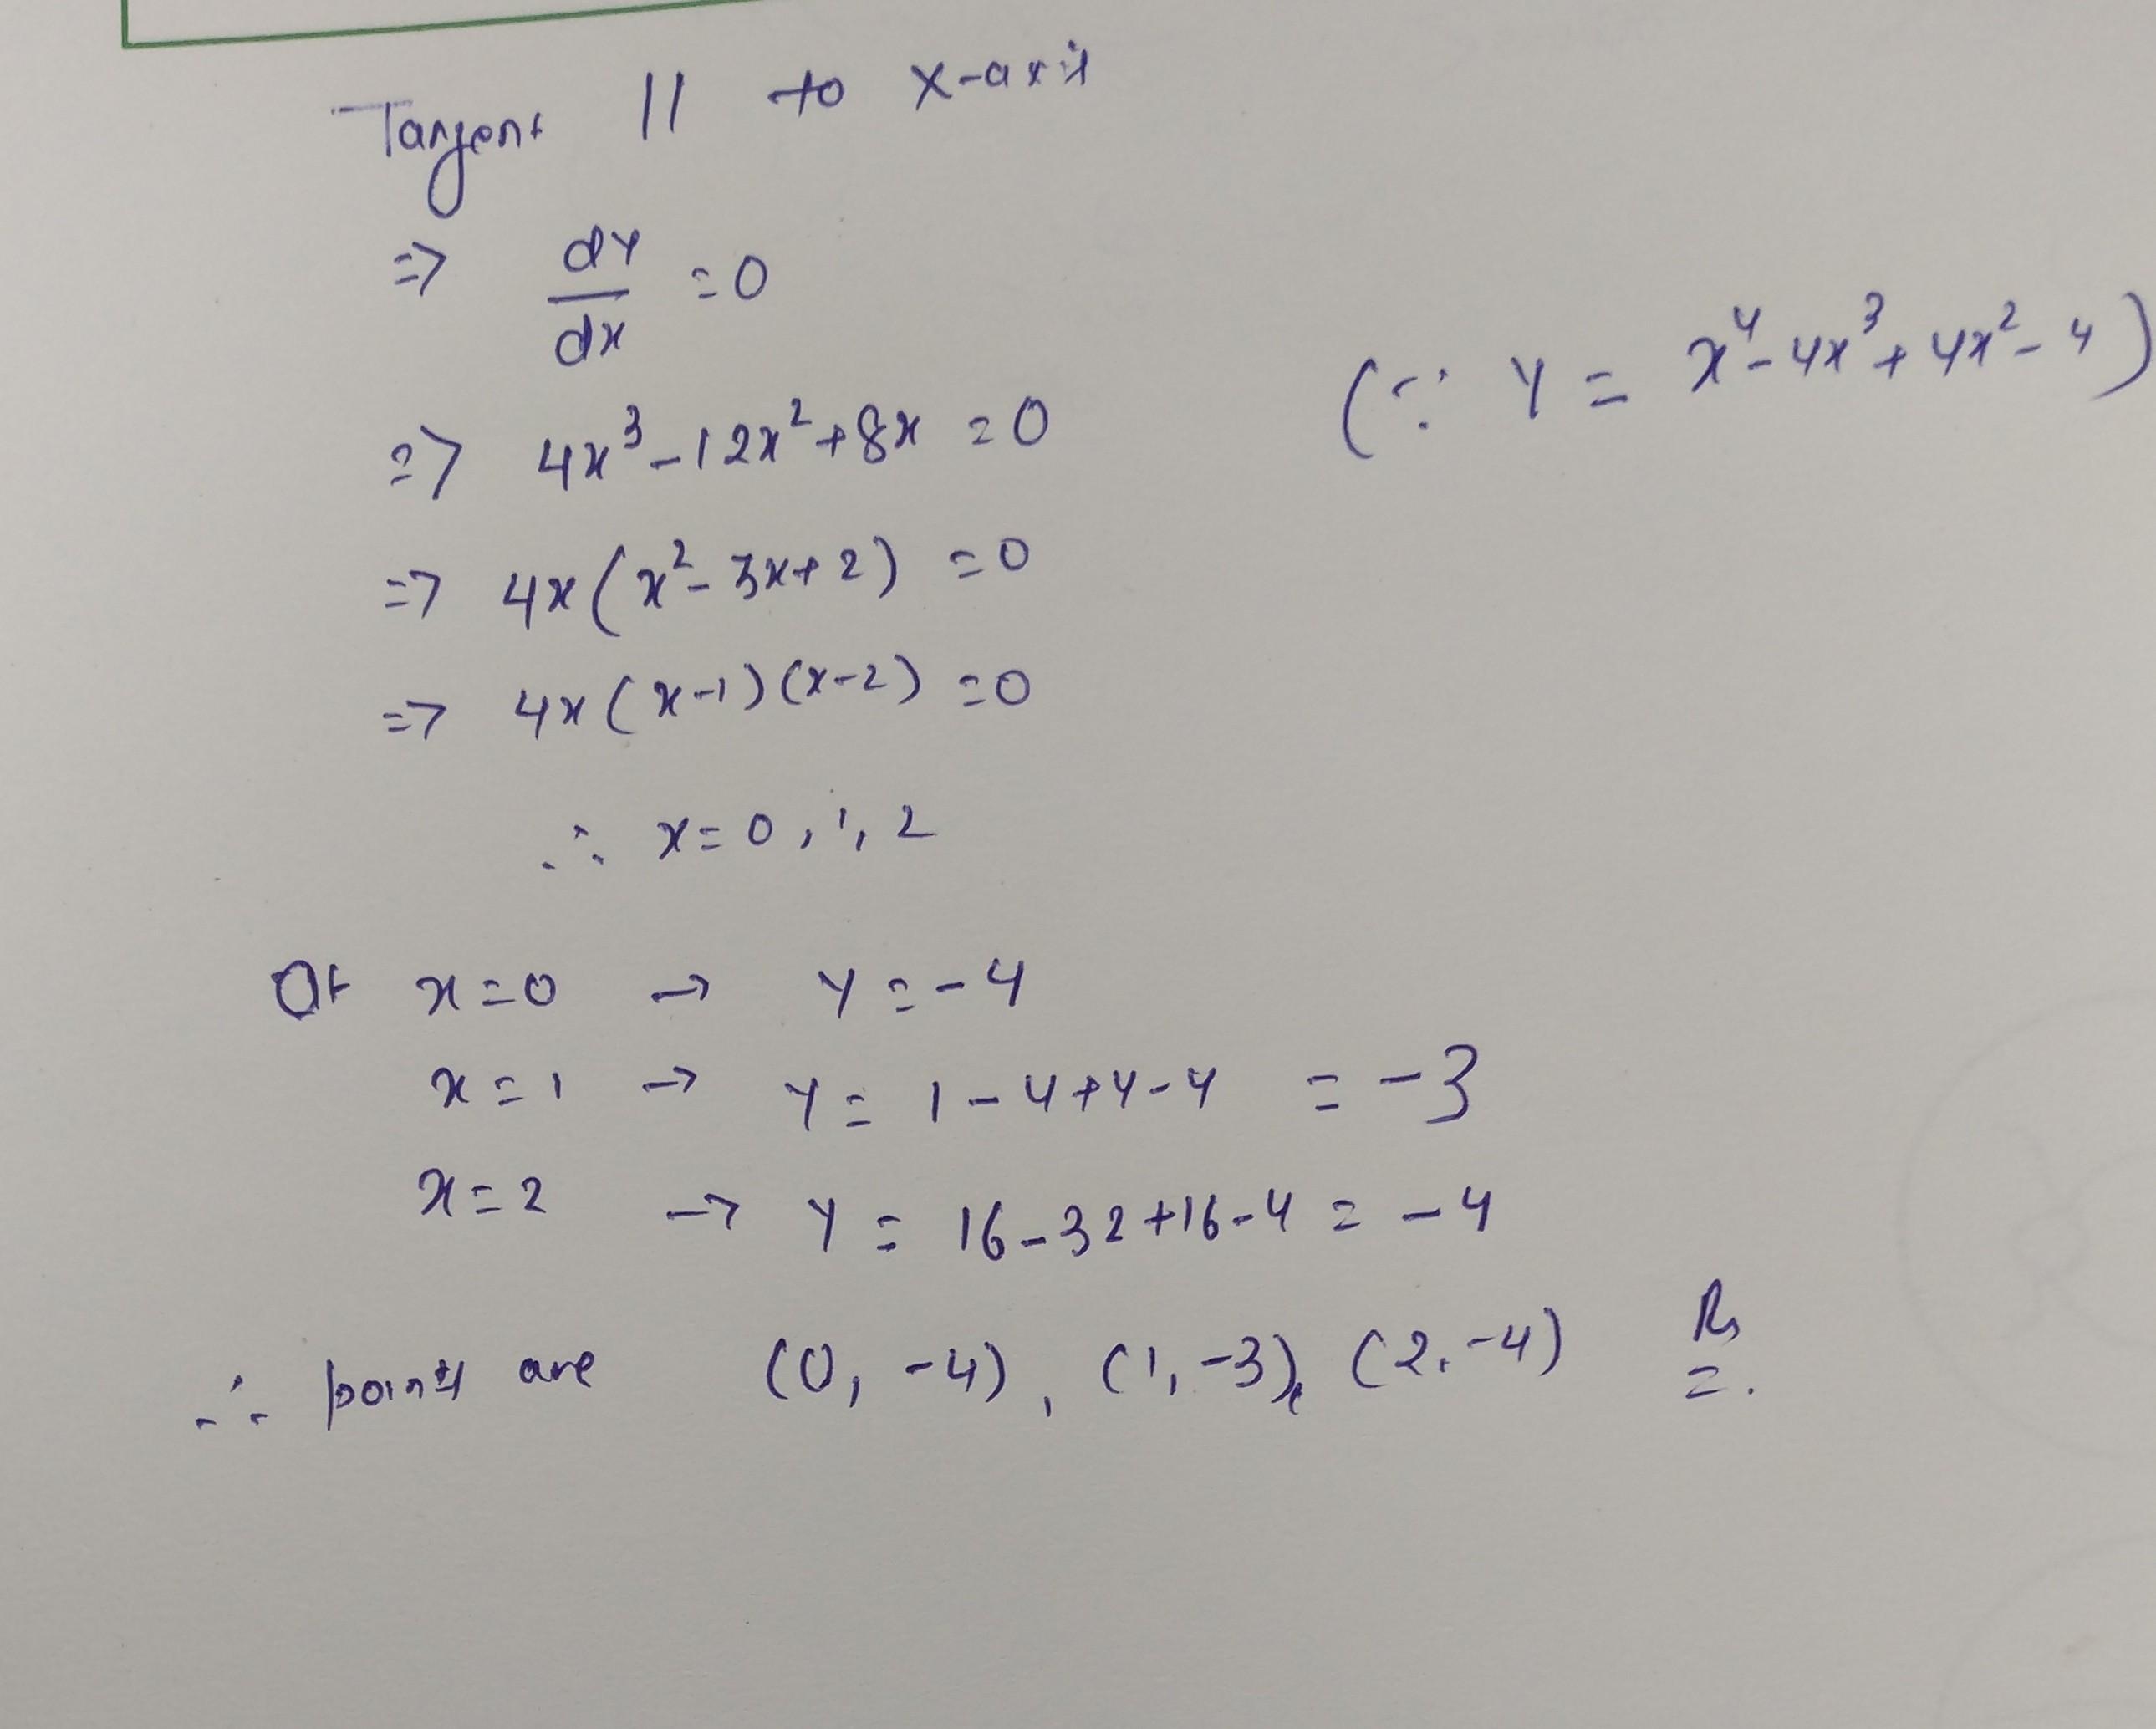 Tangent || to x-axis
=> dy/dx = 0
(∵ y = x⁴ - 4x³ + 4x² - 4)
=> 4x³ - 12x² + 8x = 0
=> 4x(x² - 3x + 2) = 0
=> 4x(x-1)(x-2) = 0
∴ x = 0, 1, 2
at x = 0 → y = -4
x = 1 → y = 1 - 4 + 4 - 4 = -3
x = 2 → y = 16 - 32 + 16 - 4 = -4
∴ points are (0, -4), (1, -3), (2, -4)